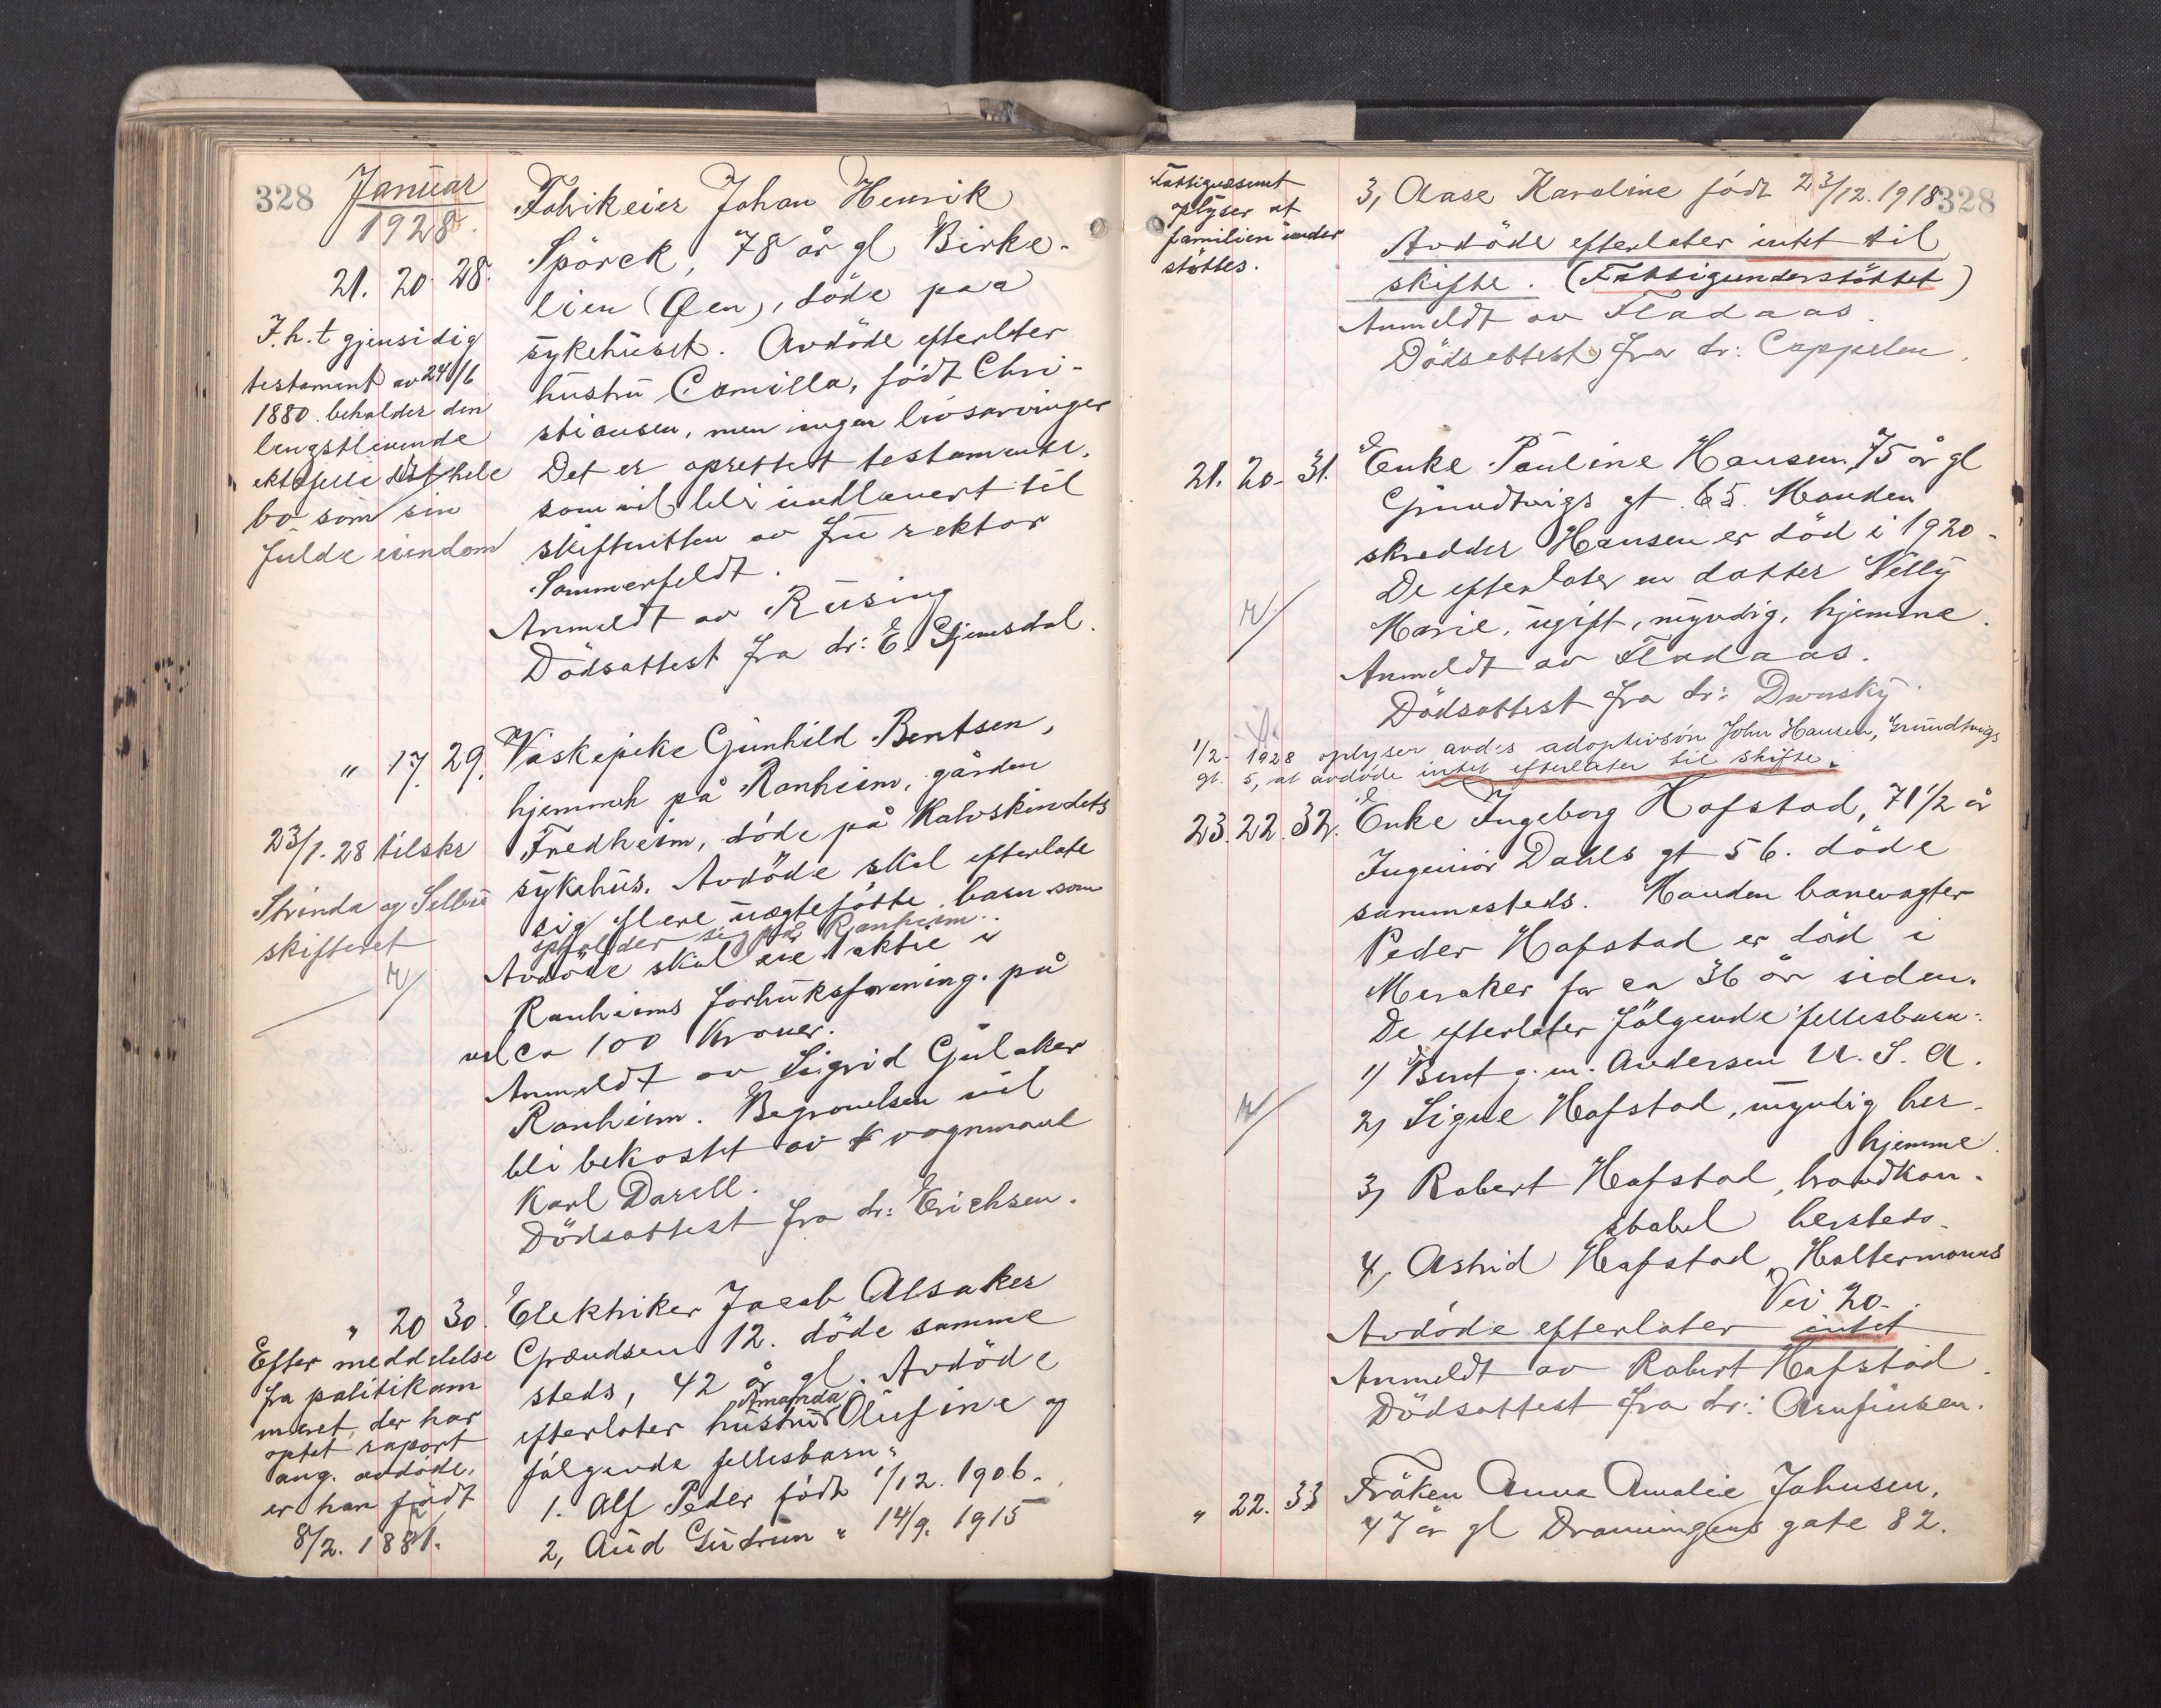 328
Januar
1928.
21. 20. 28.
Fabrikeier Johan Henrik
Spörck, 78 år gl Birke-
lien (Øen), döde paa
sykehuset. Avdöde efterlater
hustru Camilla, födt Chri-
stiansen, men ingen livsarvinger
Det er oprettet testamente,
som vil bli indlevert til
skifteretten av fru rektor
Sommerfeldt.
Anmeldt av Rüsing
Dödsattest fra dr: E. Gjemsdal.
I.h.t gjensidig
testament av 24/6
1880 beholder den
lengstlevende
ektefelle det hele
bo som sin
fulde eiendom
" 17. 29.
Vaskepike Gunhild Bentsen,
hjemmeh på Ranheim, gården
Fredheim, döde på Kalvskindets
sykehus. Avdöde skal efterlate
sig flere uægtefötte barn som
opholder sig på Ranheim.
Avdöde skal eie 1 aktie i
Ranheims forbruksforening. på
ved ca 100 Kroner.
Anmeldt av Sigrid Gulaker
Ranheim. Begravelsen vil
bli bekostet av vognmand
Karl Darell.
Dödsattest fra dr: Erichsen.
23/1. 28 tilskr
Strinda og Selbu
skifteret
" 20 30.
Elektriker Jacob Alsaker
Grændsen 12. döde samme
steds, 42 år gl. Avdöde
Amanda
efterlater hustru Olufine og
fölgende fellesbarn:
1. Alf Peder födt 1/12. 1906.
2, Aud Gudrun " 14/9. 1915
Efter meddelelse
fra politikam
meret, der har
optat raport
ang. avdöde,
er han födt
8/2. 1881.
Fattigvesenet
oplyser at
familien under
støttes.
3, Aase Karoline födt 23/12. 1918
328
Avdöde efterlater intet til
skifte. (Fattigunderstöttet)
Anmeldt av Fladaas.
Dödsattest fra dr: Cappelen.
21. 20. 31.
Enke Pauline Hansen, 75 år gl
Grundtvigs gt 65. Manden
skredder Hansen er död i 1920.
De efterlater en datter Villy
Marie, ugift, myndig, hjemme.
Anmeldt av Fladaas.
Dödsattest fra dr: Dworsky.
1/2- 1928 oplyser avd:s adoptivsön John Hansen, Grundtvigs
gt. 5, at avdöde intet efterlater til skifte.
23. 22. 32.
Enke Ingeborg Hofstad, 71 1/2 år
Ingeniör Dahls gt 56. döde
sammesteds. Manden banevagter
Peder Hofstad er död i
Meraker for ca 36 år siden.
De efterlater fölgende fellesbarn:
1) Beret g. m. Andersen U. S. A.
2) Signe Hofstad, myndig her
hjemme.
3) Robert Hofstad, brandkon-
stabel hersteds.
4, Astrid Hofstad, Haltermanns
Vei 20.
Avdöde efterlater intet
Anmeldt av Robert Hofstad.
Dödsattest fra dr: Arnfinsen.
" 22. 33
Fröken Anna Amalie Johnsen,
47 år gl Dronningens gate 82.